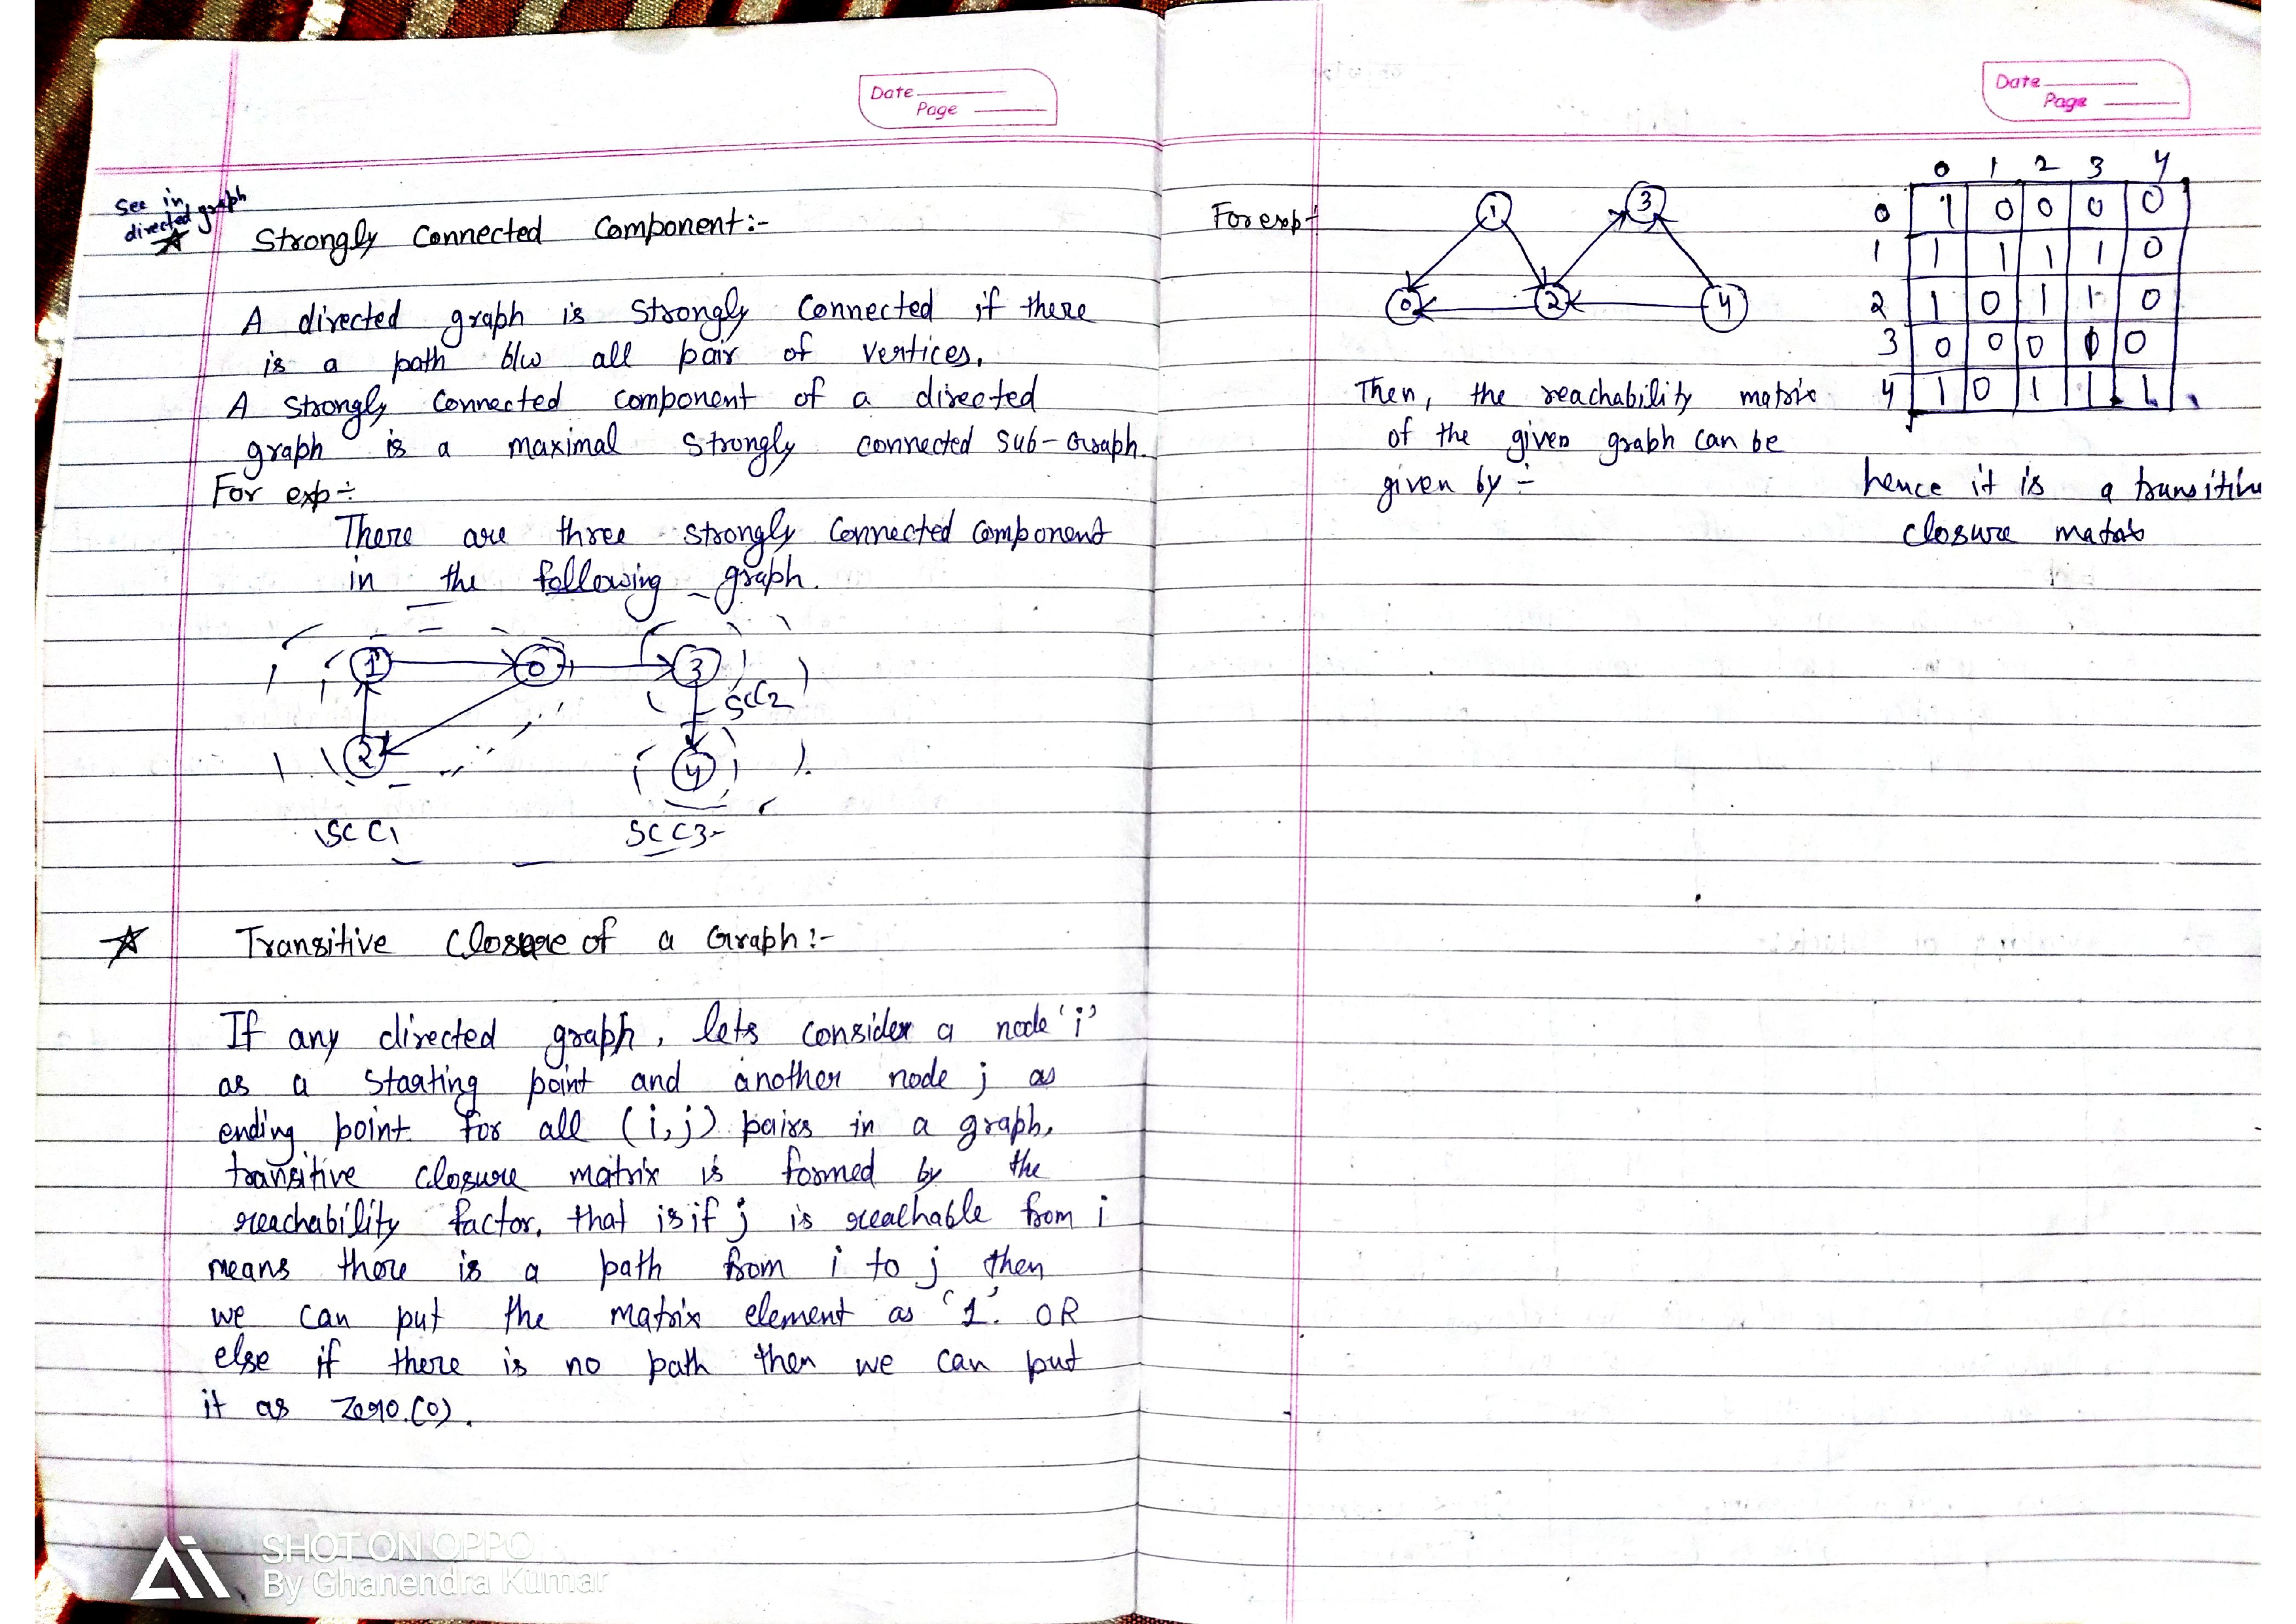 Date
Page
See in
directed graph
Strongly Connected Component:-
A directed graph is Strongly Connected if there
is a path b/w all pair of vertices.
A Strongly Connected component of a directed
graph is a maximal Strongly connected Sub-Graph.
For exp÷
There are three strongly Connected Component
in the following graph.
1 0 3
SCC2
2 4
SCC1 SCC3
Transitive Closure of a Graph:-
If any directed graph, lets consider a node 'i'
as a Starting point and another node j as
ending point. For all (i,j) pairs in a graph,
transitive closure matrix is formed by the
reachability factor, that is if j is reachable from i
means there is a path from i to j then
we can put the matrix element as '1'. OR
else if there is no path then we can put
it as Zero.(0).
SHOT ON OPPO
By Ghanendra Kumar
Date
Page
For exp÷
1 3
0 2 4
Then, the reachability matrix
of the given graph can be
given by ÷
0 1 2 3 4
0 1 0 0 0 0
1 1 1 1 1 0
2 1 0 1 1 0
3 0 0 0 1 0
4 1 0 1 1 1
hence it is a transitive
closure